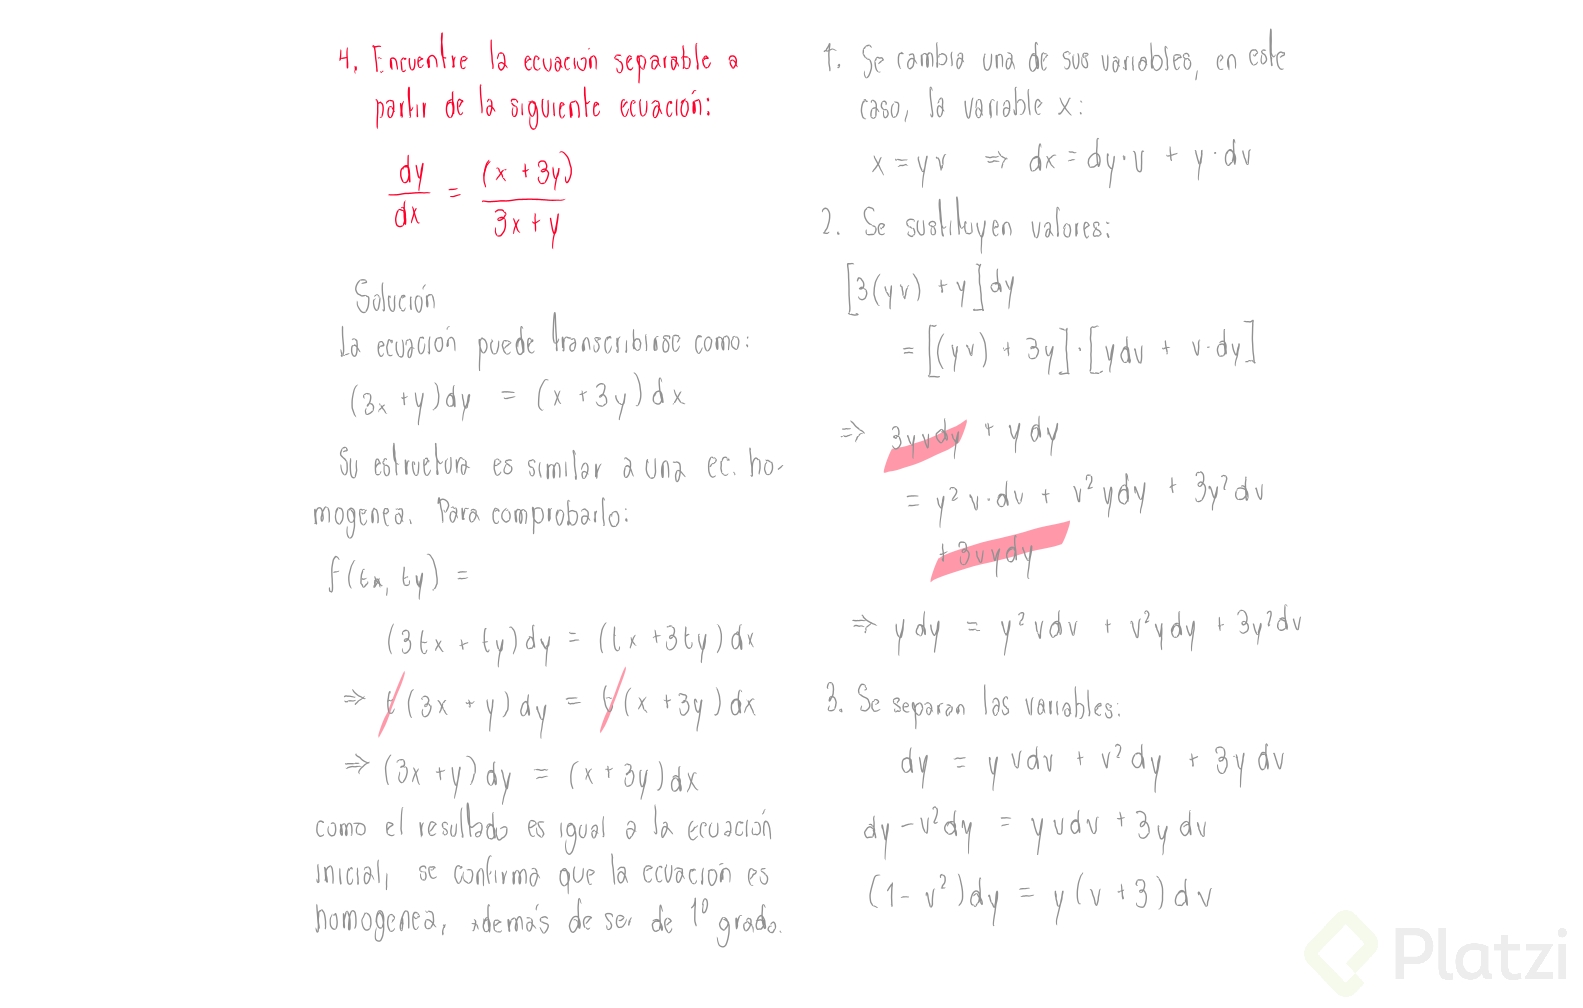 4. Encuentre la ecuación separable a
partir de la siguiente ecuación:
dy/dx = (x + 3y)/3x + y
Solución
La ecuación puede transcribirse como:
(3x + y)dy = (x + 3y)dx
Su estructura es similar a una ec. ho-
mogenea. Para comprobarlo:
f(tx, ty) =
(3tx + ty)dy = (tx + 3ty)dx
⇒ t(3x + y)dy = t(x + 3y)dx
⇒ (3x + y)dy = (x + 3y)dx
como el resultado es igual a la ecuación
inicial, se confirma que la ecuación es
homogenea, además de ser de 1º grado.
1. Se cambia una de sus variables, en este
caso, la variable x:
x = yv ⇒ dx = dy·v + y·dv
2. Se sustituyen valores:
[3(yv) + y]dy
= [(yv) + 3y]·[ydv + v·dy]
⇒ 3yvdy + ydy
= y²v·dv + v²ydy + 3y²dv
+ 3vydy
⇒ ydy = y²vdv + v²ydy + 3y²dv
3. Se separan las variables:
dy = yvdv + v²dy + 3ydv
dy - v²dy = yvdv + 3ydv
(1 - v²)dy = y(v + 3)dv
Platzi